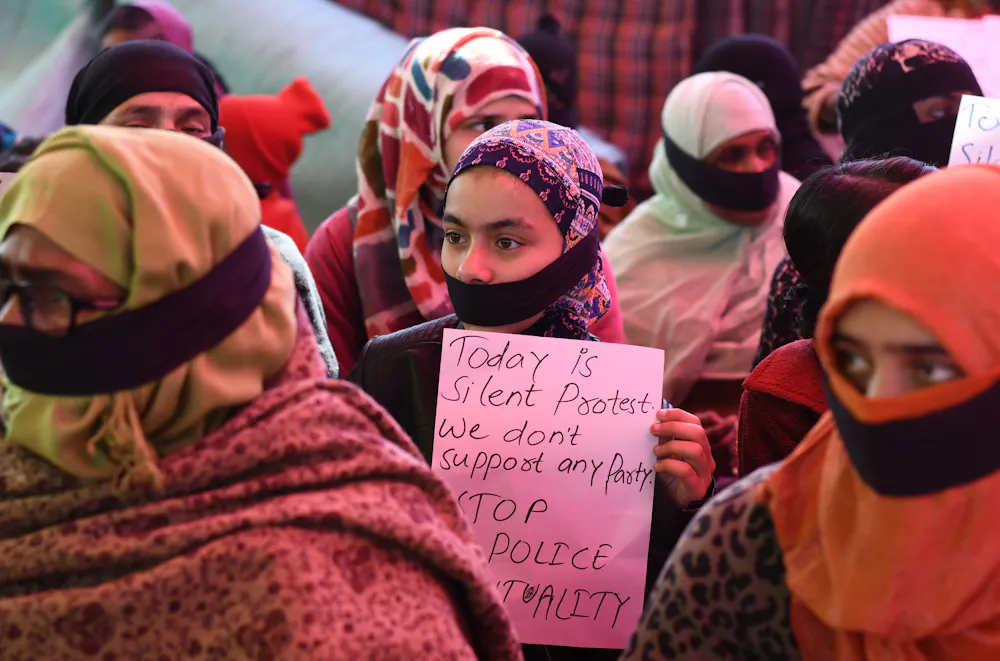 Today is
Silent Protest.
We don't
support any Party.
STOP
POLICE
TUALITY
To
Sil